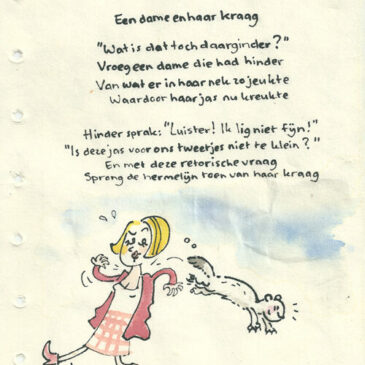 Een dame en haar kraag
"Wat is dat toch daarginder?"
Vroeg een dame die had hinder
Van wat er in haar nek zo jeukte
Waardoor haar jas nu kreukte
Hinder sprak: "Luister! Ik lig niet fijn!"
"Is deze jas voor ons tweetjes niet te klein?"
En met deze retorische vraag
Sprong de hermelijn toen van haar kraag